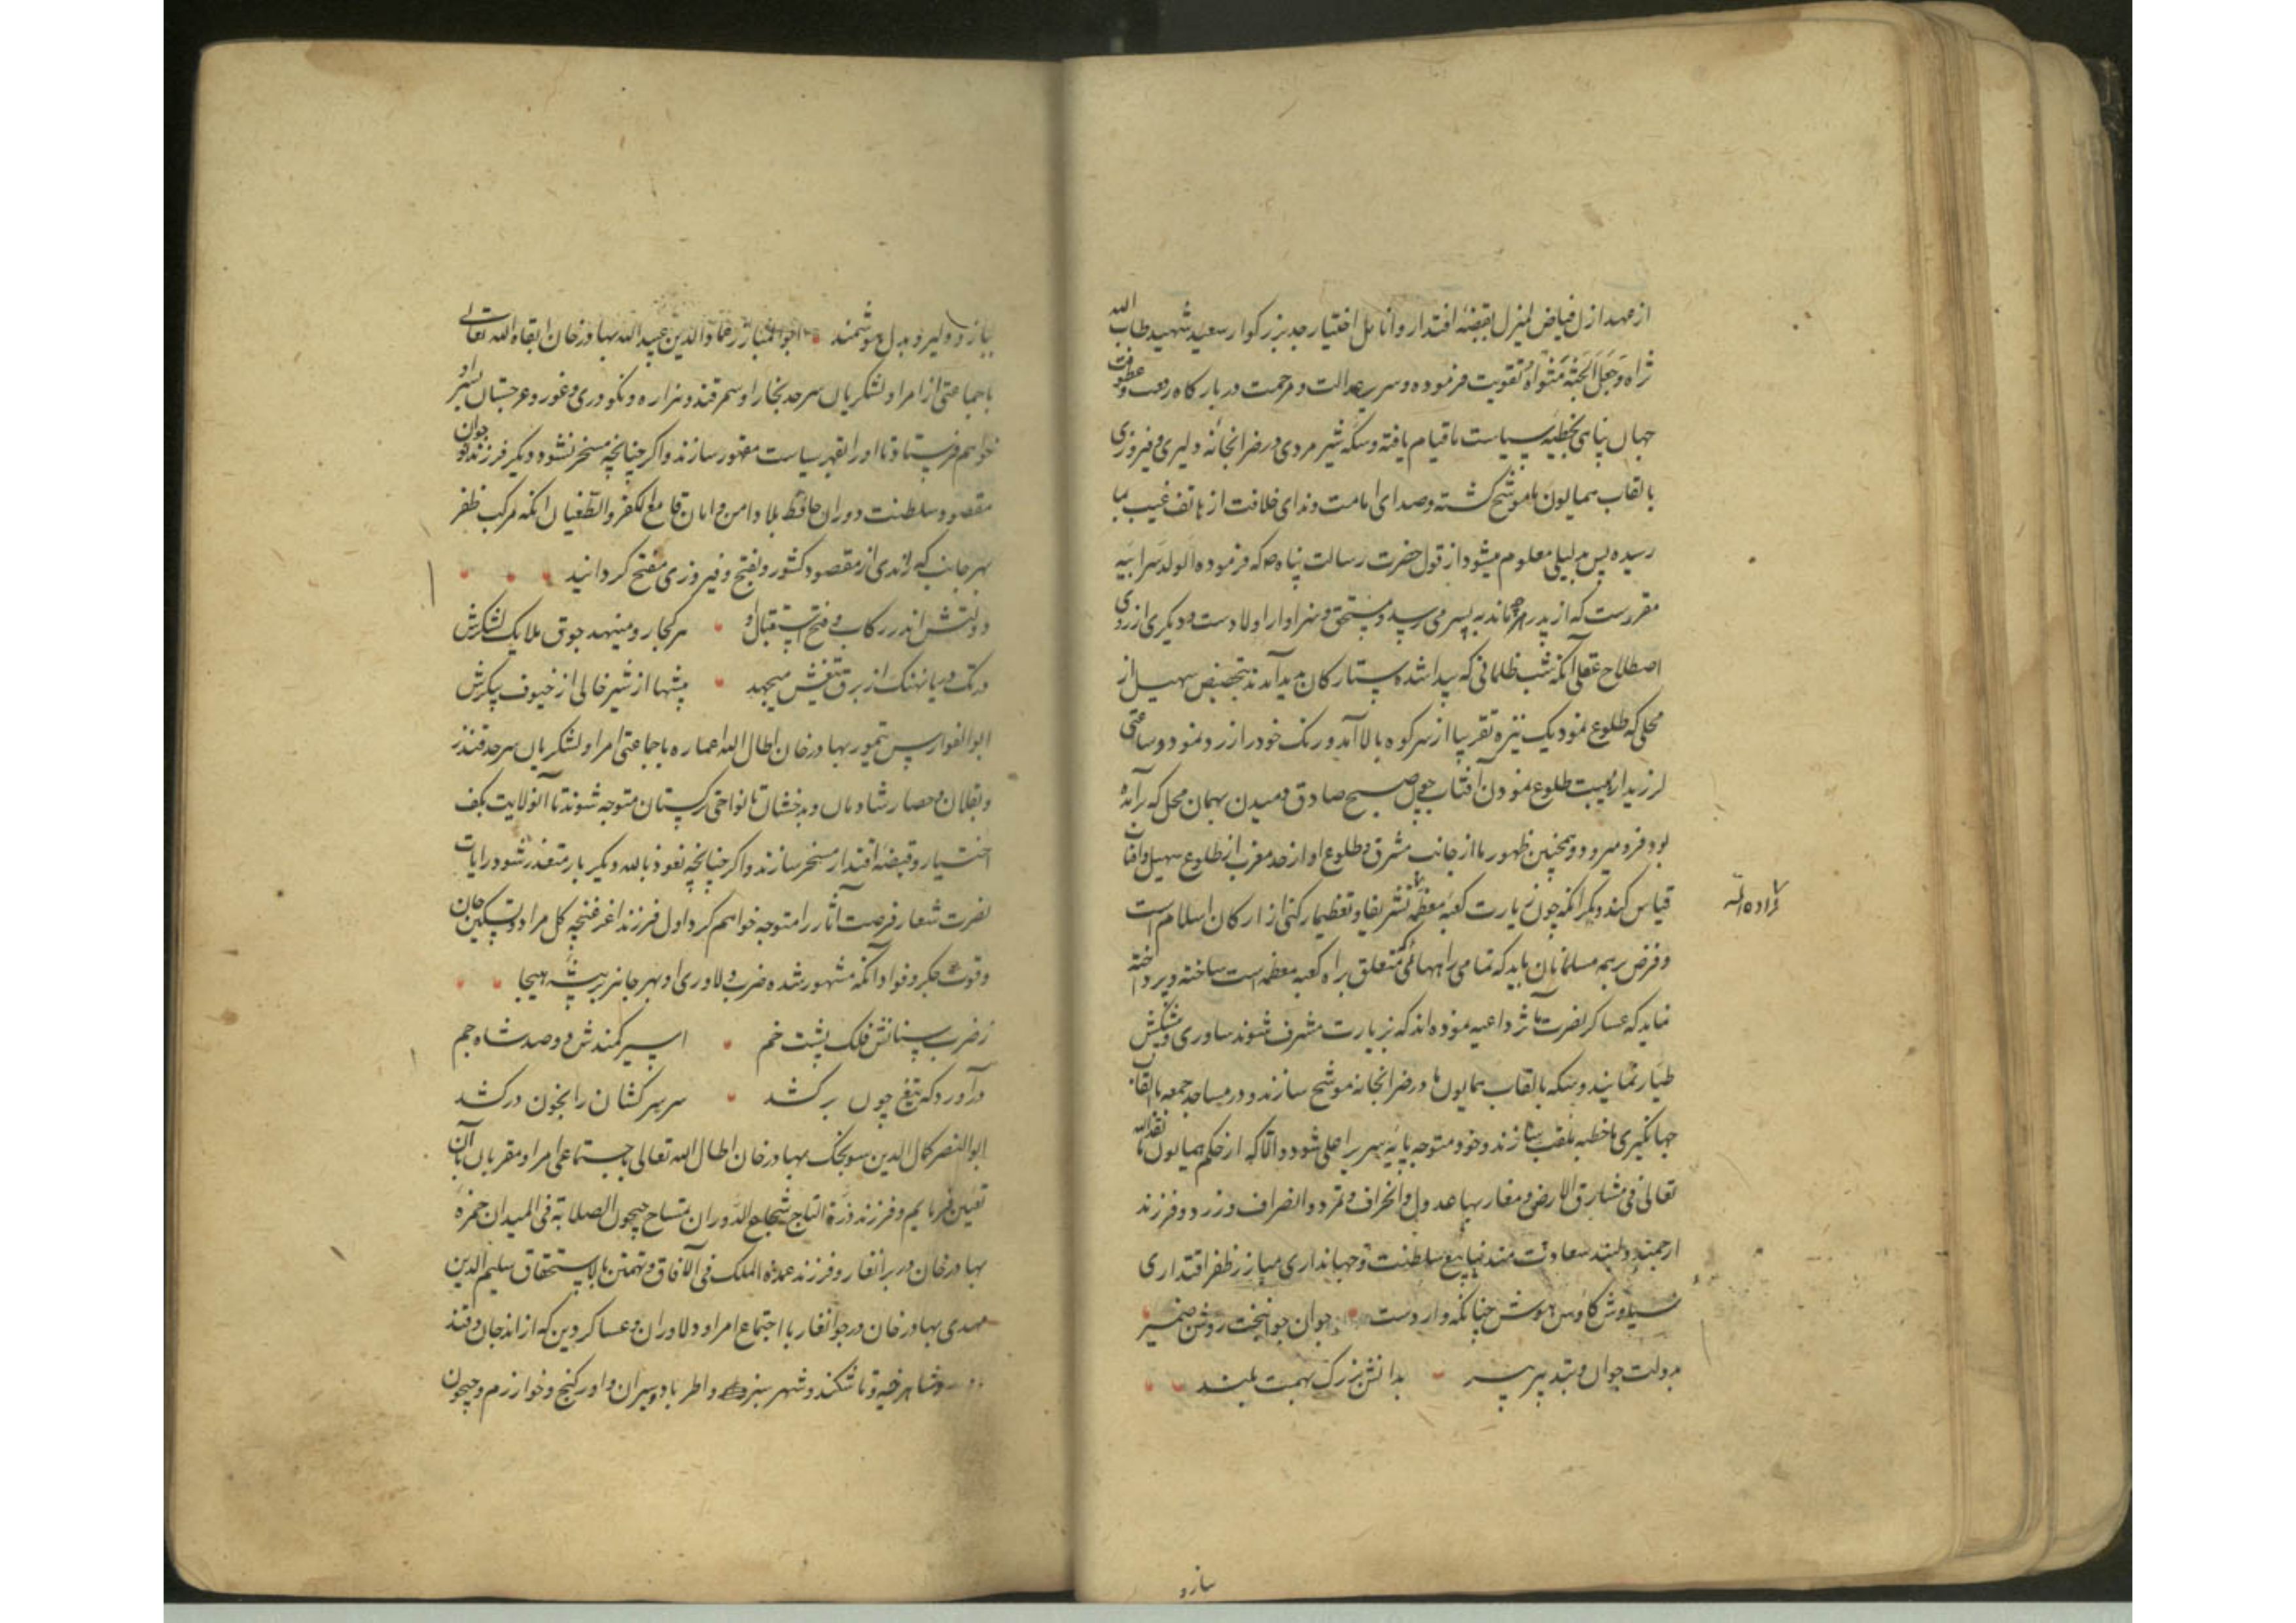 از عهد ازل فیاض لم یزل بقبضهٔ اقتدار و انامل اختیار جد بزرگوار سعید شهید طاب الله
ثراه و جعل الجنة مثواه تقویت فرموده و سریر عدالت و مرحمت در بارگاه رفعت و عظمت
جهان پناهی بخطبهٔ سیاست ما قیام یافته و سکه شیر مردی در ضرابخانه دلیری و فیروزی
بالقاب همایون ما موشح گشته و صدای امامت و ندای خلافت از هاتف غیب بما
رسیده پس بدلیلی معلوم میشود از قول حضرت رسالت پناه صه که فرموده الولد سر ابیه
مقررست که از پدر هرچه ماند به پسر می رسد و مستحق و سزاوار اولادست و دیگری از روی
اصطلاح عقلی آنکه شب ظلمانی که پیدا شده ستارگان پدید آمدند بتخصیص سهیل از
محلی که طلوع نمود یک نیزه تقریبا از سر کوه بالا آمد و رنگ خود را زرد نمود و ساعتی
لرزید از هیبت طلوع نمودن آفتاب چون صبح صادق دمیدن بهمان محل که برآمده
بود فرو میرود و همچنین ظهور ما از جانب مشرق و طلوع او از حد مغرب از طلوع سهیل و آفتاب
قیاس کند دیگر آنکه چون زیارت کعبهٔ معظمه تشریفا و تعظیما رکنی از ارکان اسلام است
زاده الله
و فرض بر همه مسلمانان باید که تمامی راههائی متعلق براه کعبه معظمه است ساخته و پرداخته
نماید که عساکر نصرت مآثر داعیه نموده اند که بزیارت مشرف شوند ساوری و پیشکش
طیار نمایند و سکه بالقاب همایون ما در ضرابخانه موشح سازند و در مساجد جمعه بالقاب
جهانگیری ما خطبه ملقب سازند و خود متوجه پایهٔ سریر اعلی شود و الا که از حکم همایون ما نفذه الله
تعالی فی مشارق الارض و مغاربها عدول و انحراف و تمرد و انصراف ورزد و فرزند
ارجمند دلبند سعادت مند سلطنت و جهانداری مبارز ظفر اقتداری
سیاوش کاوس هوش چنانکه واردست جوان جوانبخت روشن ضمیر
بدولت جوان و بتدبیر پیر بدانش بزرگ بهمت بلند
سازد
ببازو دلیر و بدل هوشمند ابو المبارز عبید الله بهادر خان ابقاه الله تعالی
با جماعتی از امرا و لشکریان سرحد بخارا و سمرقند و هزاره و نکودری و غور و غرجستان بسر او
خواهم فرستاد تا او را بقهر سیاست مقهور سازند و اگر چنانچه مسخر نشود دیگر فرزند جوان
مقصود سلطنت دوران حافظ بلاد امن و امان قامع الکفر و الطغیان آنکه مرکب ظفر
بهر جانب که راندی از مقصود کشور و بفتح و فیروزی مفتح گردانید
دولتش اندر رکاب و فتح استقبال او هر کجا رو مینهد جوق ملایک لشکرش
در تک دریا نهنگ از برق تیغش میجهد بیشها از شیر خالی از خیوف پیکرش
ابو الفوارس تیمور بهادر خان اطال الله اعماره با جماعتی امرا و لشکریان سرحد قندز
و بقلان و حصار شادمان و بدخشان تا نواحی ترکستان متوجه شوند تا آنولایت بکف
اختیار و قبضهٔ اقتدار مسخر سازند و اگر چنانچه نعوذ بالله دیگر بار متعذر شود رایات
نصرت شعار فرصت آثار را متوجه خواهم کرد اول فرزند اغر غنچه گل مراد و تسکین جان
و قوت جگر و فواد آنکه مشهور شده ضرب دلاوری او بهر جا نبر بیشه هیجا
ز ضرب سنانش فلک پشت خم اسیر کمندش دو صد شاه جم
درآورد که تیغ چون برکشد سر سرکشان را بخون درکشد
ابو النصر کمال الدین سونجک بهادر خان اطال الله تعالی باجتماعی امرا و مقربان آن
تعیین فرمایم و فرزند درة التاج شجاع الدوران جیحون الصلابة فی المیدان حمزه
بهادر خان در برانغار و فرزند عمدة الملک فی الآفاق و تهمتن بالاستحقاق سلیم الدین
مهدی بهادر خان در جوانغار با اجتماع امرا و دلاوران و عساکر دین که از اندجان و قند
و شاهرخیه و تاشکند و شهر سبز و اطرار و سیران و اورکنج و خوارزم و جیحون